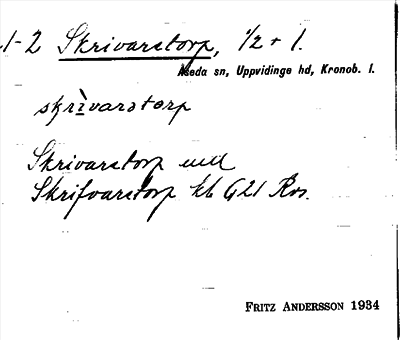 1-2 Skrivarstorp, 1/2 + 1.
Åseda sn, Uppvidinge hd, Kronob. l.
skrìvarstorp
Skrivarstorp
Skrifvarstorp kb G21 Ros.
FRITZ ANDERSSON 1934